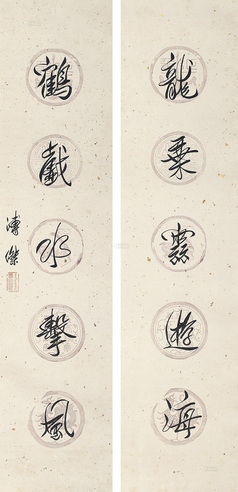 龍乘霧遊海
鶴戲水擊風
溥傑